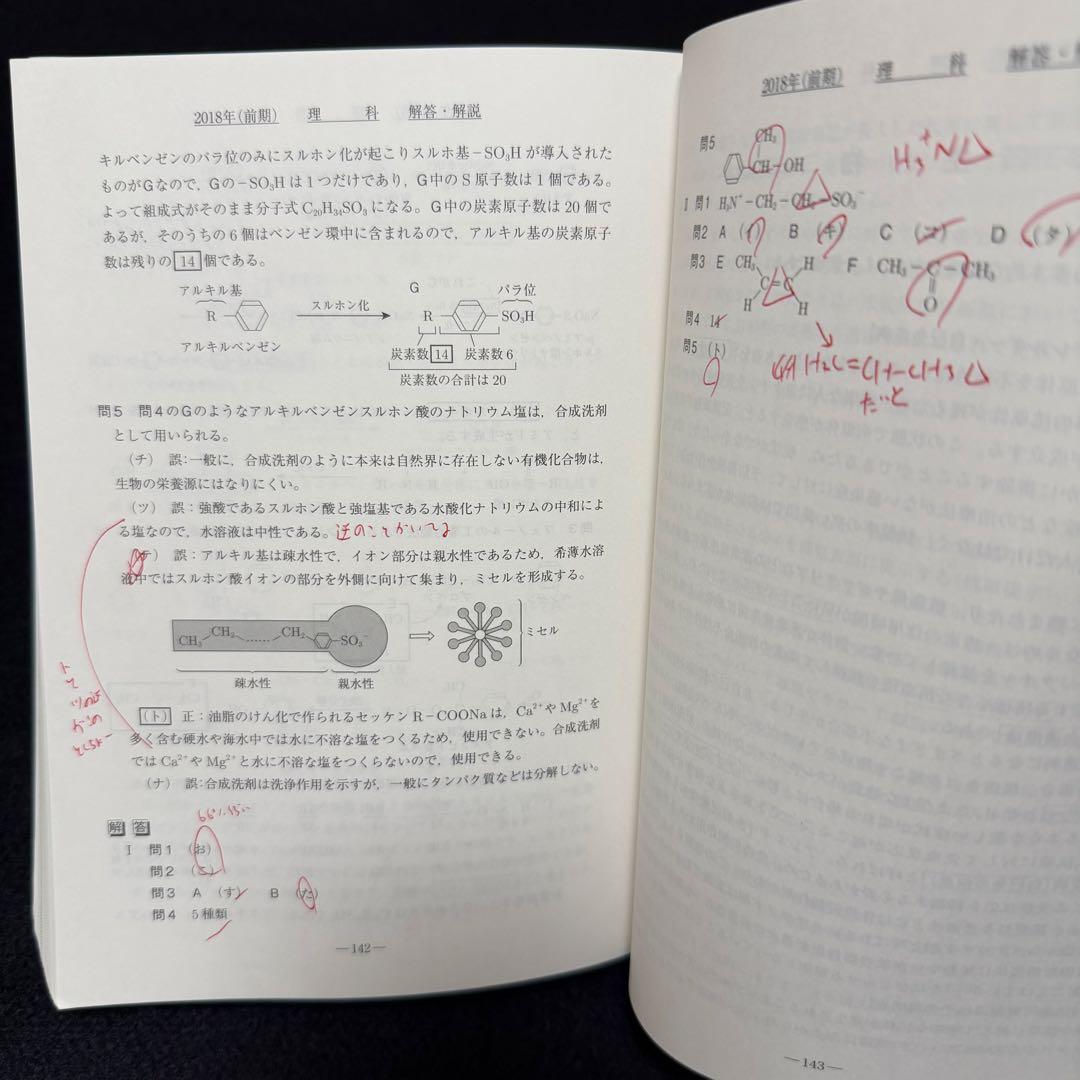 2018年(前期) 理 科 解答・解説
キルベンゼンのパラ位のみにスルホン化が起こりスルホ基−SO₃Hが導入された
ものがGなので，Gの−SO₃Hは1つだけであり，G中のS原子数は1個である。
よって組成式がそのまま分子式C₂₀H₃₄SO₃になる。G中の炭素原子数は20個で
あるが，そのうちの6個はベンゼン環中に含まれるので，アルキル基の炭素原子
数は残りの14個である。
アルキル基 G パラ位
R− スルホン化 R− −SO₃H
アルキルベンゼン 炭素数14 炭素数6
炭素数の合計は20
問5 問4のGのようなアルキルベンゼンスルホン酸のナトリウム塩は，合成洗剤
として用いられる。
(チ) 誤：一般に，合成洗剤のように本来は自然界に存在しない有機化合物は，
生物の栄養源にはなりにくい。
(ツ) 誤：強酸であるスルホン酸と強塩基である水酸化ナトリウムの中和によ
る塩なので，水溶液は中性である。逆のことかいてる
(テ) 誤：アルキル基は疎水性で，イオン部分は親水性であるため，希薄水溶
液中ではスルホン酸イオンの部分を外側に向けて集まり，ミセルを形成する。
CH₃ CH₂ …… CH₂ −SO₃⁻ ミセル
疎水性 親水性
(ト) 正：油脂のけん化で作られるセッケンR−COONaは，Ca²⁺やMg²⁺を
多く含む硬水や海水中では水に不溶な塩をつくるため，使用できない。合成洗剤
ではCa²⁺やMg²⁺と水に不溶な塩をつくらないので，使用できる。
(ナ) 誤：合成洗剤は洗浄作用を示すが，一般にタンパク質などは分解しない。
解答
Ⅰ 問1 (お)
問2 (こ)
問3 A (す) B (た)
問4 5種類
―142―
2018年(前期) 理 科 解答・
問5 CH₃
CH−OH
H₃⁺N
Ⅱ 問1 H₃N⁺−CH₂−CH₂−SO₃⁻
問2 A (イ) B (キ) C (コ) D (タ)
問3 E CH₃ H C=C H H F CH₃−C−CH₃ O
問4 14
問5 (ト)
H₂C=CH−CH₃
だと
―143―